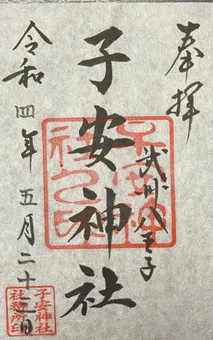 奉拝
武州八王子
子安神社
令和四年五月二十一日
子安神社
社務所印